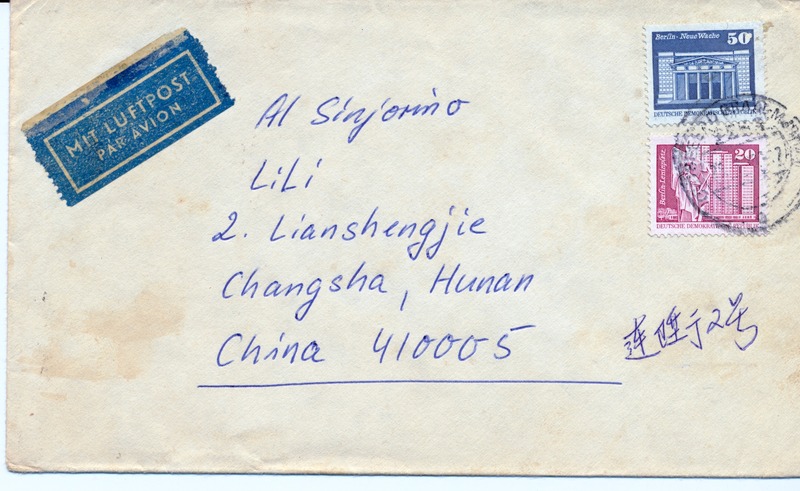 MIT LUFTPOST
PAR AVION
Berlin-Neue Wache
50
DEUTSCHE DEMOKRATISCHE
Berlin-Leninplatz
20
DEUTSCHE DEMOKRATISCHE
Al Sinjorino
LiLi
2. Lianshengjie
Changsha, Hunan
China 410005
2号